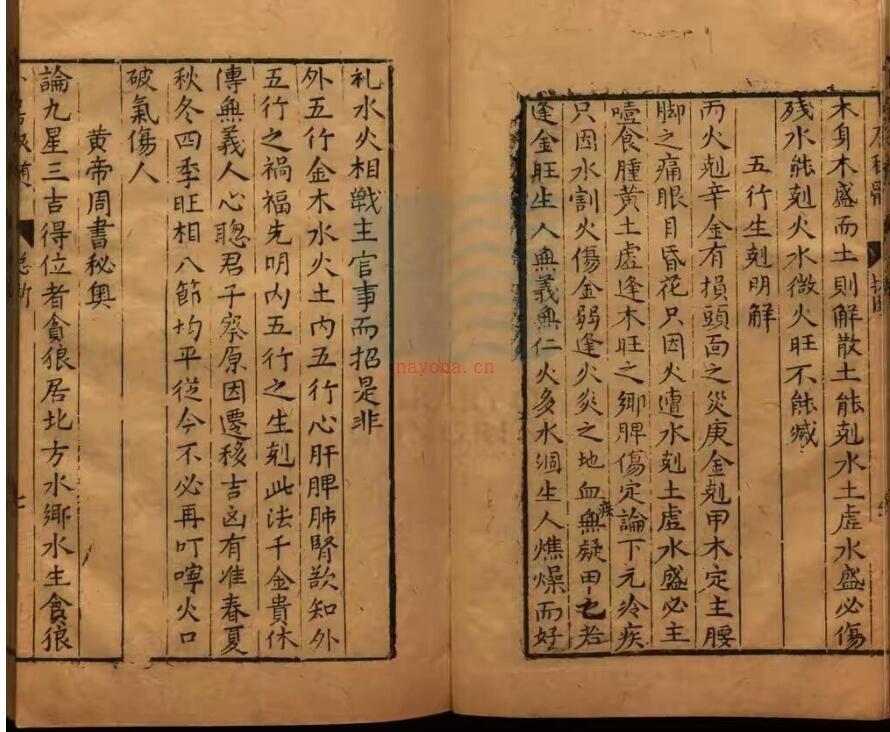 木身木盛而土則解散土能剋水土虛水盛必傷
残水能剋火水微火旺不能滅
五行生剋明解
丙火剋辛金有損頭面之災庚金剋甲木定主腰
脚之痛眼目昏花只因火遭水剋土虛水盛必主
噎食腫黄土虚逢木旺之鄉脾傷定論下元冷疾
只因水割火傷金弱逢火炎之地血無疑田七若
疾
逢金旺生人無義無仁火多水涸生人燋燥而好
礼水火相戰主官事而招是非
外五行金木水火土内五行心肝脾肺腎欲知外
五行之禍福先明内五行之生剋此法千金貴休
傳無義人心聰君子察原因遷移吉凶有准春夏
秋冬四季旺相八節均平從今不必再叮嚀火口
破氣傷人
黄帝周書秘奥
論九星三吉得位者貪狼居北方水鄉水生貪狼
nayona.cn